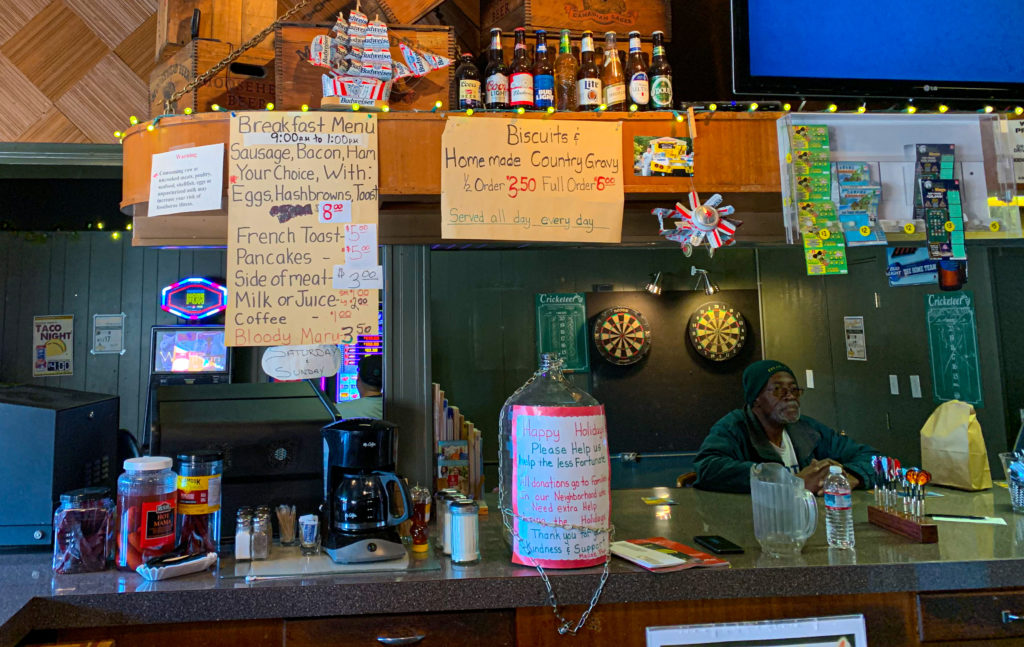 Budweiser
Budweiser
Coors
LIGHT
Lite
Warning
Consuming raw or
undercooked meats, poultry,
seafood, shellfish, eggs or
unpasteurized milk may
increase your risk of
foodborne illness.
Breakfast Menu
9:00am to 1:00pm
Sausage, Bacon, Ham
Your Choice, With:
Eggs, Hashbrowns, Toast
8.00
French Toast- $5.00
Pancakes - $5.00
Side of meat- $3.00
Milk or Juice- $2.00
Coffee - $1.00
Bloody Mary 3.50
SATURDAY
&
SUNDAY
Biscuits &
Homemade Country Gravy
1/2 Order $3.50 Full Order $6.00
Served all day every day
Cricketeer
Cricketeer
TACO
NIGHT
HOT
MAMA
Happy Holidays
Please Help us
help the less Fortunate
All donations go to families
in our Neighborhood who
Need extra Help
the Holidays
Thank you for
Kindness & Support